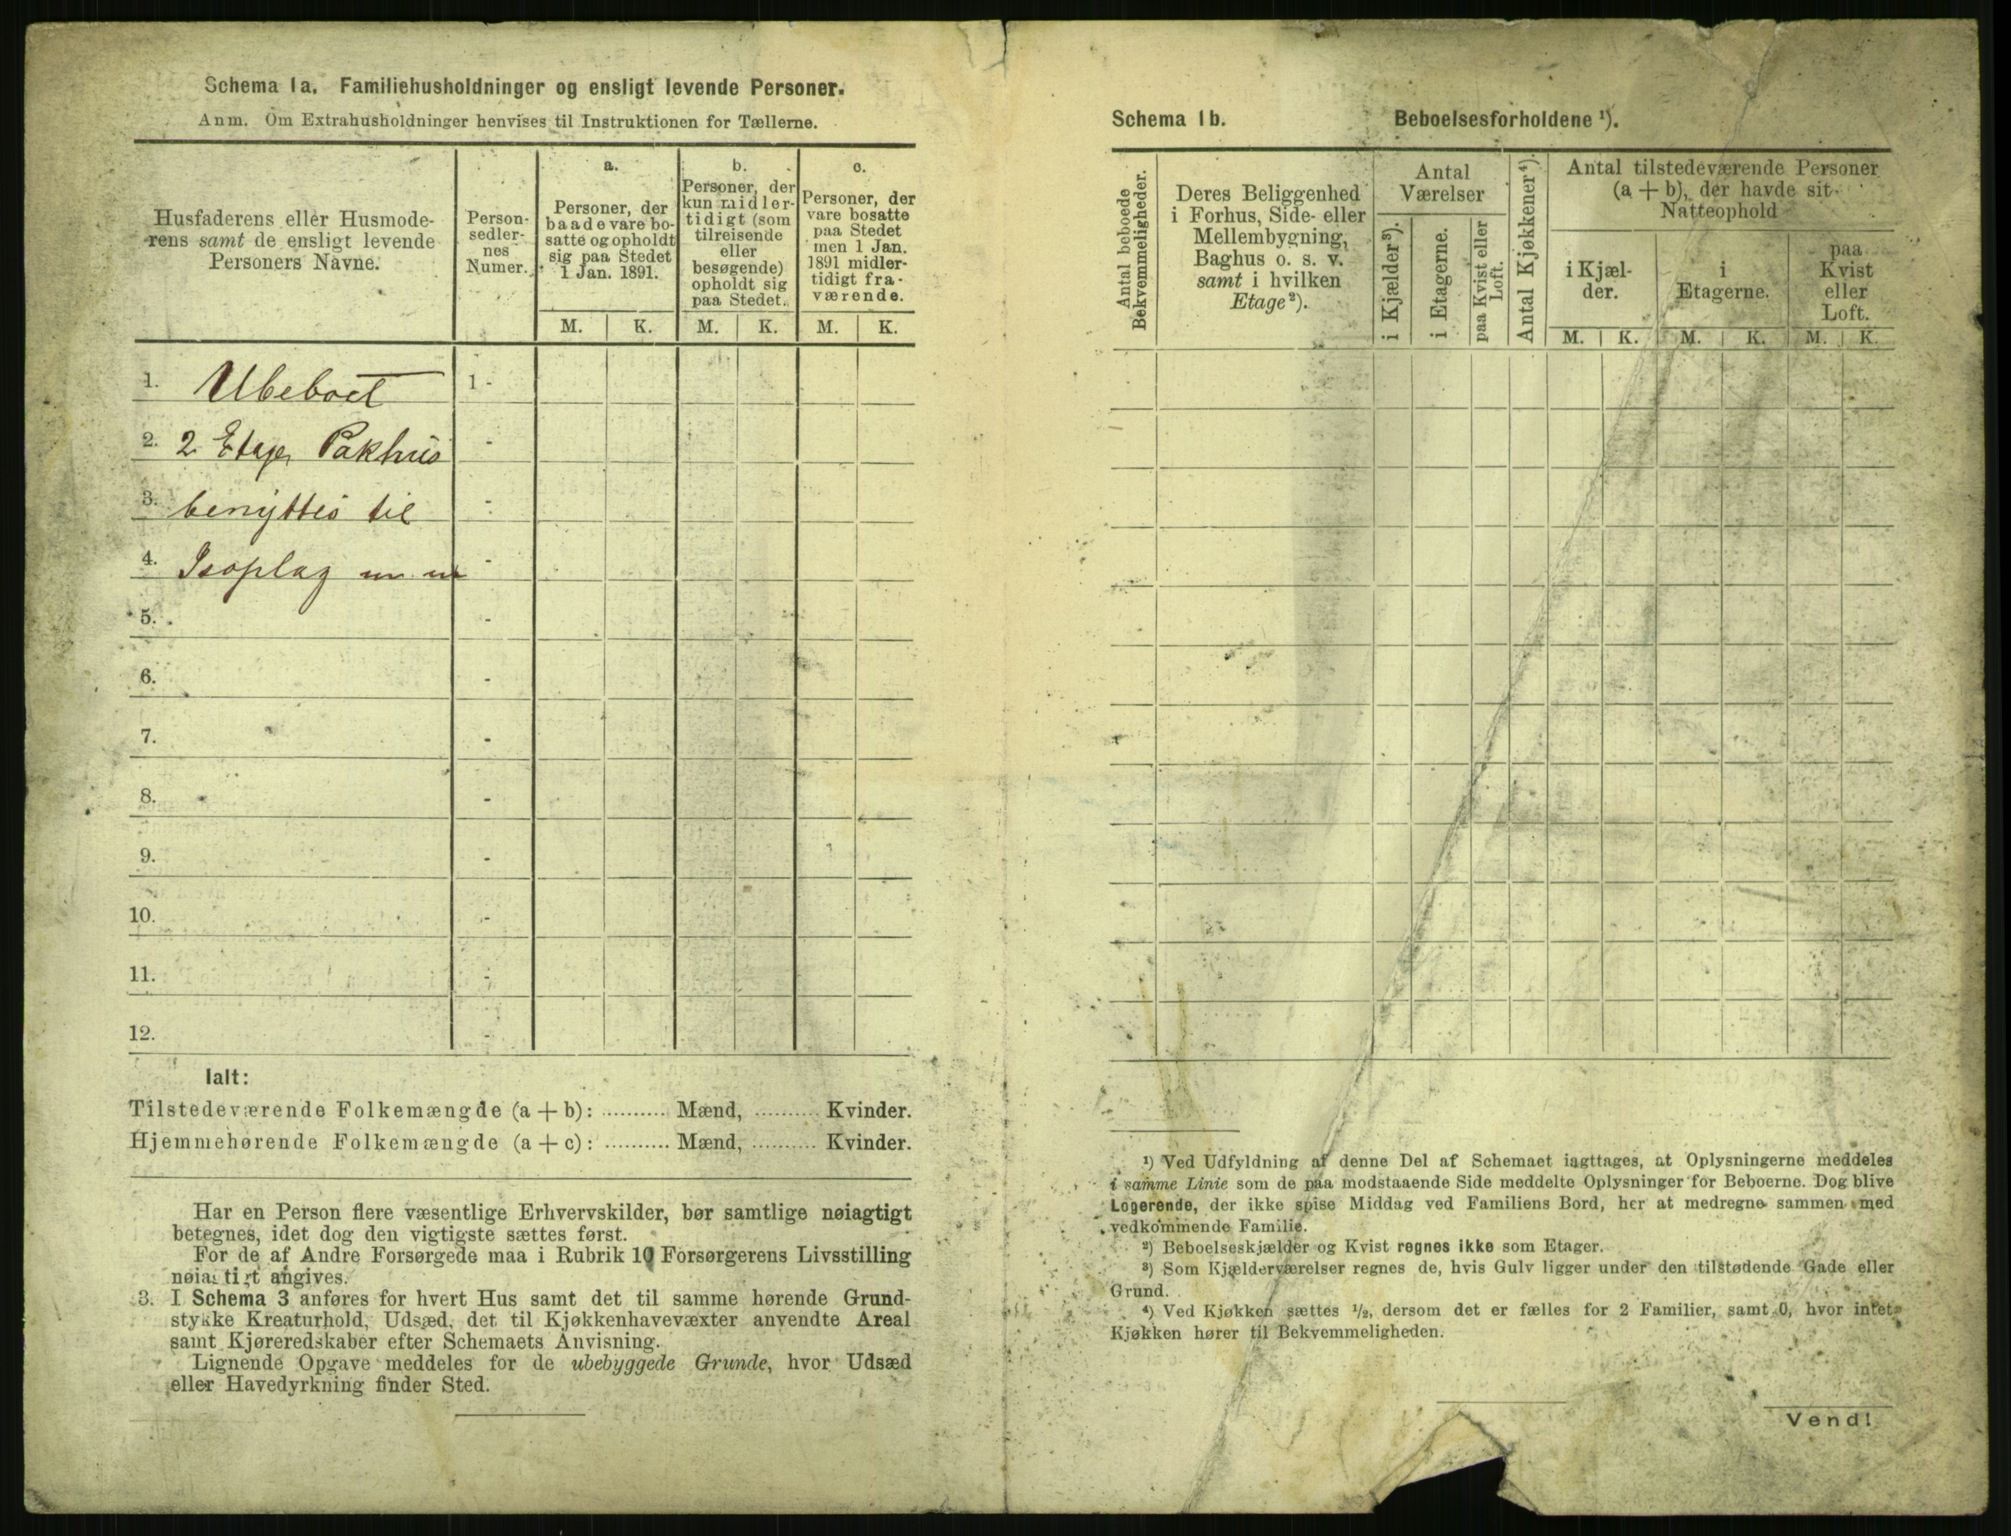 Schema 1a. Familiehusholdninger og ensligt levende Personer.
Anm. Om Extrahusholdninger henvises til Instruktionen for Tællerne.
Husfaderens eller Husmode-
rens samt de ensligt levende
Personers Navne.
Person-
sedler-
nes
Numer.
a.
Personer, der
baade vare bo-
satte og opholdt
sig paa Stedet
1 Jan. 1891.
M. K.
b.
Personer, der
kun midler-
tidigt (som
tilreisende
eller
besøgende)
opholdt sig
paa Stedet.
M. K.
c.
Personer, der
vare bosatte
paa Stedet
men 1 Jan.
1891 midler-
tidigt fra-
værende.
M. K.
1. Ubeboet 1 -
2. 2 Etages Pakhus -
3. benyttes til -
4. Isoplag m m -
5. -
6. -
7. -
8. -
9. -
10. -
11. -
12. -
Ialt:
Tilstedeværende Folkemængde (a + b): .......... Mænd, .......... Kvinder.
Hjemmehørende Folkemængde (a + c): .......... Mænd, .......... Kvinder.
Har en Person flere væsentlige Erhvervskilder, bør samtlige nøiagtigt
betegnes, idet dog den vigtigste sættes først.
For de af Andre Forsørgede maa i Rubrik 10 Forsørgerens Livsstilling
nøiagtigt angives.
3. I Schema 3 anføres for hvert Hus samt det til samme hørende Grund-
stykke Kreaturhold, Udsæd, det til Kjøkkenhavevæxter anvendte Areal
samt Kjøreredskaber efter Schemaets Anvisning.
Lignende Opgave meddeles for de ubebyggede Grunde, hvor Udsæd
eller Havedyrkning finder Sted.
Schema 1b. Beboelsesforholdene ¹).
Antal beboede
Bekvemmeligheder.
Deres Beliggenhed
i Forhus, Side- eller
Mellembygning,
Baghus o. s. v.
samt i hvilken
Etage²).
Antal
Værelser
i Kjælder³).
i Etagerne.
paa Kvist eller
Loft.
Antal Kjøkkener⁴).
Antal tilstedeværende Personer
(a + b), der havde sit
Natteophold
i Kjæl-
der.
i
Etagerne.
paa
Kvist
eller
Loft.
M. K. M. K. M. K.
¹) Ved Udfyldning af denne Del af Schemaet iagttages, at Oplysningerne meddeles
i samme Linie som de paa modstaaende Side meddelte Oplysninger for Beboerne. Dog blive
Logerende, der ikke spise Middag ved Familiens Bord, her at medregne sammen med
vedkommende Familie.
²) Beboelseskjælder og Kvist regnes ikke som Etager.
³) Som Kjælderværelser regnes de, hvis Gulv ligger under den tilstødende Gade eller
Grund.
⁴) Ved Kjøkken sættes ½, dersom det er fælles for 2 Familier, samt 0, hvor intet
Kjøkken hører til Bekvemmeligheden.
Vend!